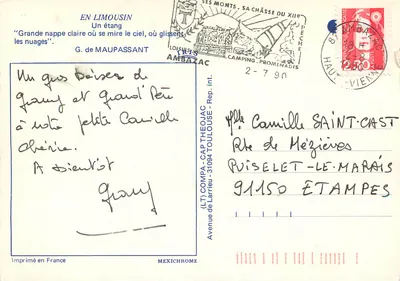 EN LIMOUSIN
Un étang
"Grande nappe claire où se mire le ciel, où glissent
les nuages".
G. de MAUPASSANT
SES MONTS, SA CHÂSSE DU XIIe
PÊCHE
CAMPING - PROMENADES
AMBAZAC
2-7-90
HAUTE-VIENNE
Un gros baiser de
Grany et Grand Père
à notre petite Camille
chérie.
A bientôt
Grany
(LT) COMPA - CAP THEOJAC
Avenue de Larrieu - 31094 TOULOUSE - Rep. int.
Mlle Camille SAINT-CAST
Rte de Mézières
PUISELET-LE-MARAIS
91150 ETAMPES
Imprimé en France
MEXICHROME